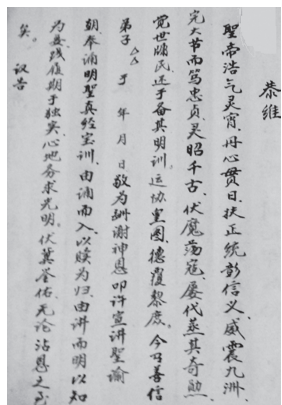 恭维
聖帝浩气灵宵，丹心贯日，扶正统彭信义，威震九洲，
完大节而笃忠贞，灵昭千古，伏魔荡寇，屡代蒸其奇勋，
觉世牖民，还于备其明训。运协皇图，德覆黎庶。今有善信
弟子△△于 年 月 日敬为酬谢神恩叩许宣讲聖谕
朝奉诵明聖真经宝训，由诵而入以 为归，由讲而明以知
为 践履期于独矣，心地务求光明。伏冀 佑无论沾恩之
矣。 议告